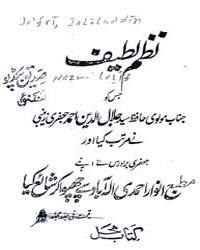 Ja'fri, Jalaluddin
نظم لطیف
Nazm-i Latif
جس کو
جناب مولوی حافظ سید جلال الدین احمد جعفری زینبی
نے مرتب کیا اور
جعفری برادرس نے اپنے
مطبع انوار احمدی الہ آباد سے چھپوا کر شائع کیا